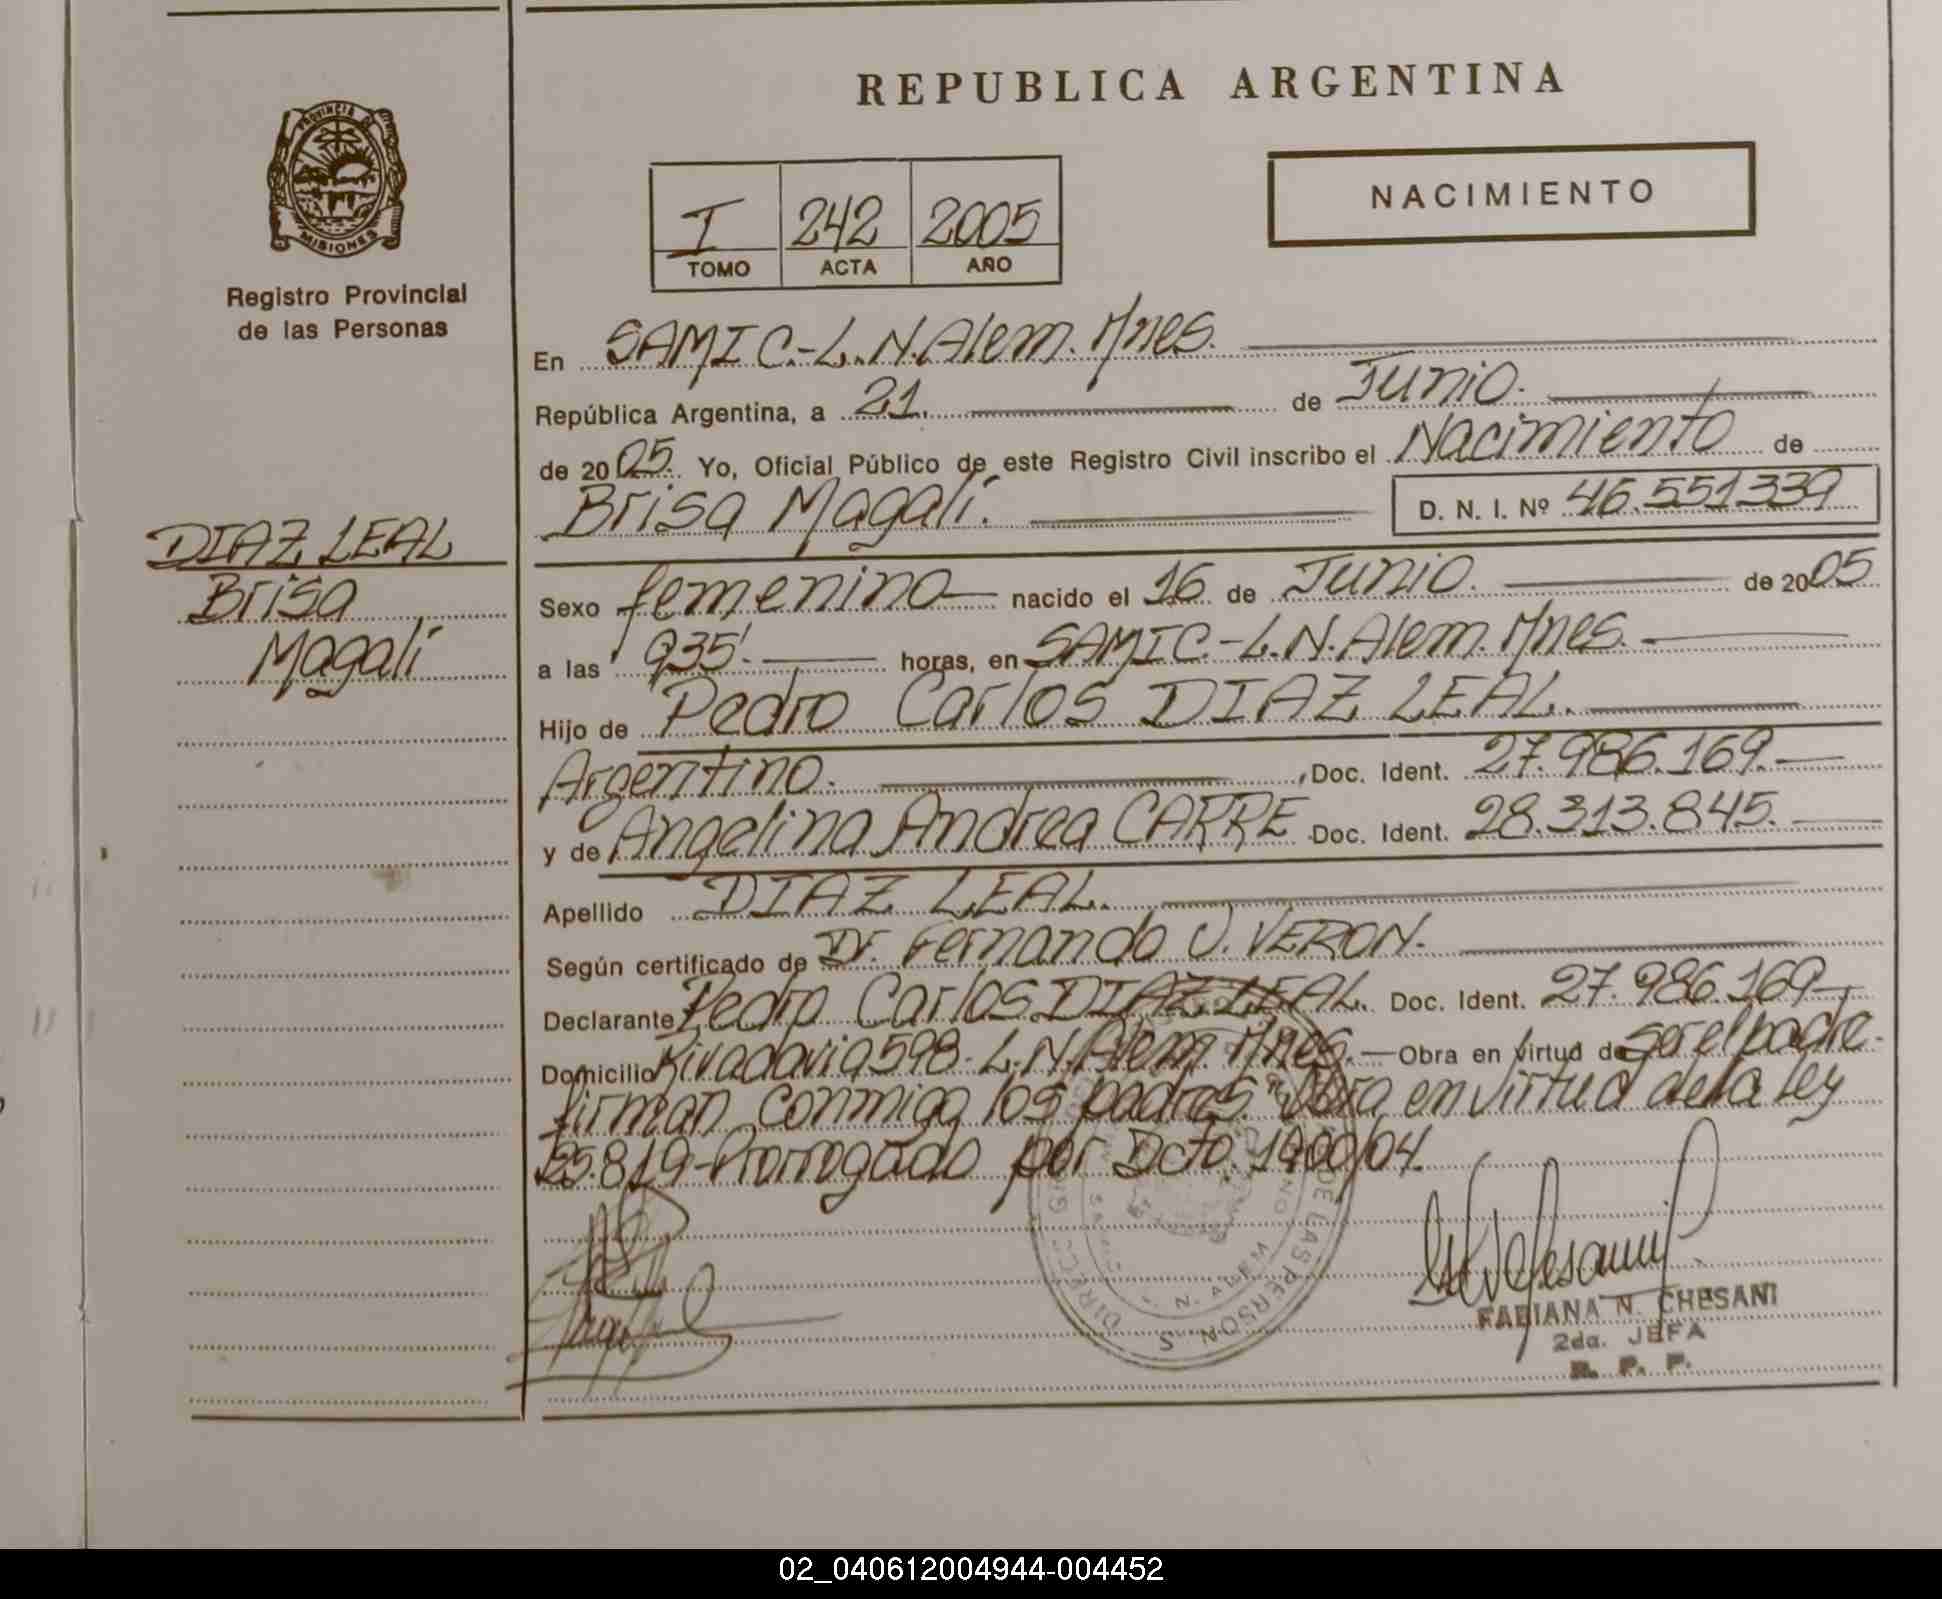 REPUBLICA ARGENTINA
PROVINCIA DE
MISIONES
Registro Provincial
de las Personas
NACIMIENTO
I 242 2005
TOMO ACTA AÑO
En SAMIC.-L.N.Alem. Mnes.
República Argentina, a 21. de Junio.
de 2005. Yo, Oficial Público de este Registro Civil inscribo el Nacimiento de
Brisa Magalí. D. N. I. Nº 46.551339
DIAZ LEAL
Brisa
Magalí
Sexo femenino nacido el 16 de Junio. de 2005
a las 935'. horas, en SAMIC.-L.N.Alem. Mnes.
Hijo de Pedro Carlos DIAZ LEAL.
Argentino. , Doc. Ident. 27.986.169.
y de Angelina Andrea CARRE Doc. Ident. 28.313.845.
Apellido DIAZ LEAL.
Según certificado de Dr. Fernando J. VERON.
Declarante Pedro Carlos DIAZ LEAL. Doc. Ident. 27.986.169
Domicilio Rivadavia 598. L.N.Alem. Mnes. Obra en virtud de ser el padre.
firman conmigo los padres. Obra en virtud de la Ley
25.819-Prorrogado por Dcto. 1900/04.
DE LAS PERSONAS
N. ALEM
FABIANA N. CHESANI
2da. JEFA
R. P. P.
02_040612004944-004452